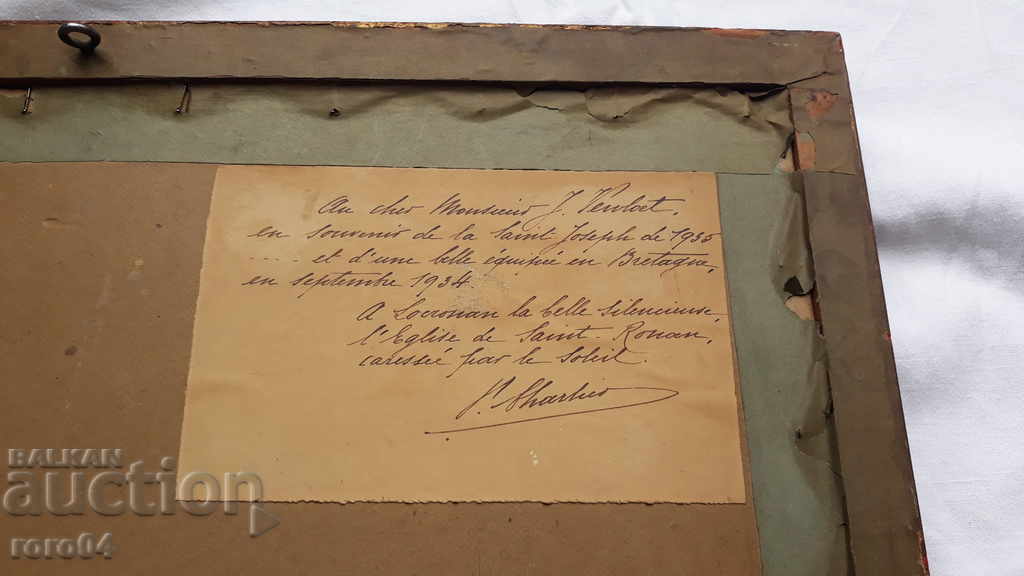 Au cher Monsieur J.
en souvenir de la Saint Joseph de 1935
..... et d'une belle équipée en Bretagne,
en septembre 1934
A Locronan la belle silencieuse,
l'Eglise de Saint-Ronan,
caressée par le Soleil.
BALKAN
auction
roro04